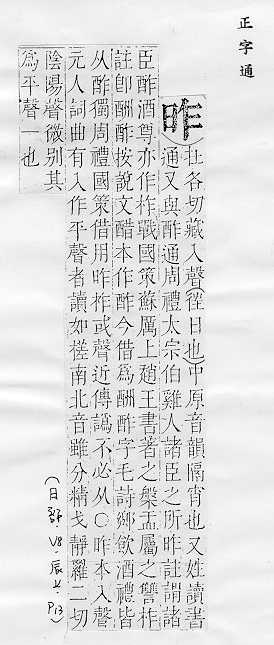 正字通
昨
各切藏入聲(徑日也)中原音韻隔宵也又姓讀書
通又與酢通周禮太宗伯雞人諸臣之所昨註謂諸
臣酢酒尊亦作柞戰國策蘇厲上趙王書著之槃盂屬之讐柞
註卽酬酢按說文醋本作酢今借爲酬酢字毛詩鄉飲酒禮皆
从酢獨周禮國策借用昨柞或聲近傳譌不必从○昨本入聲
元人詞曲有入作平聲者讀如槎南北音雖分精戈靜羅二切
陰陽聲微别其
爲平聲一也
(日部 V8.辰上.P13)